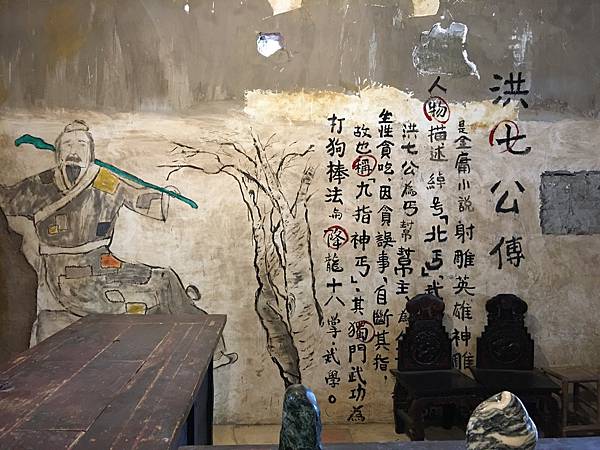 洪七公傳
是金庸小說射雕英雄神雕
人物描述綽号「北丐」武
洪七公為丐幫幫主為
生性貪吃,因貪誤事,自斷其指,
故也稱「九指神丐」,其獨門武功為
打狗棒法与降龍十八掌武學。